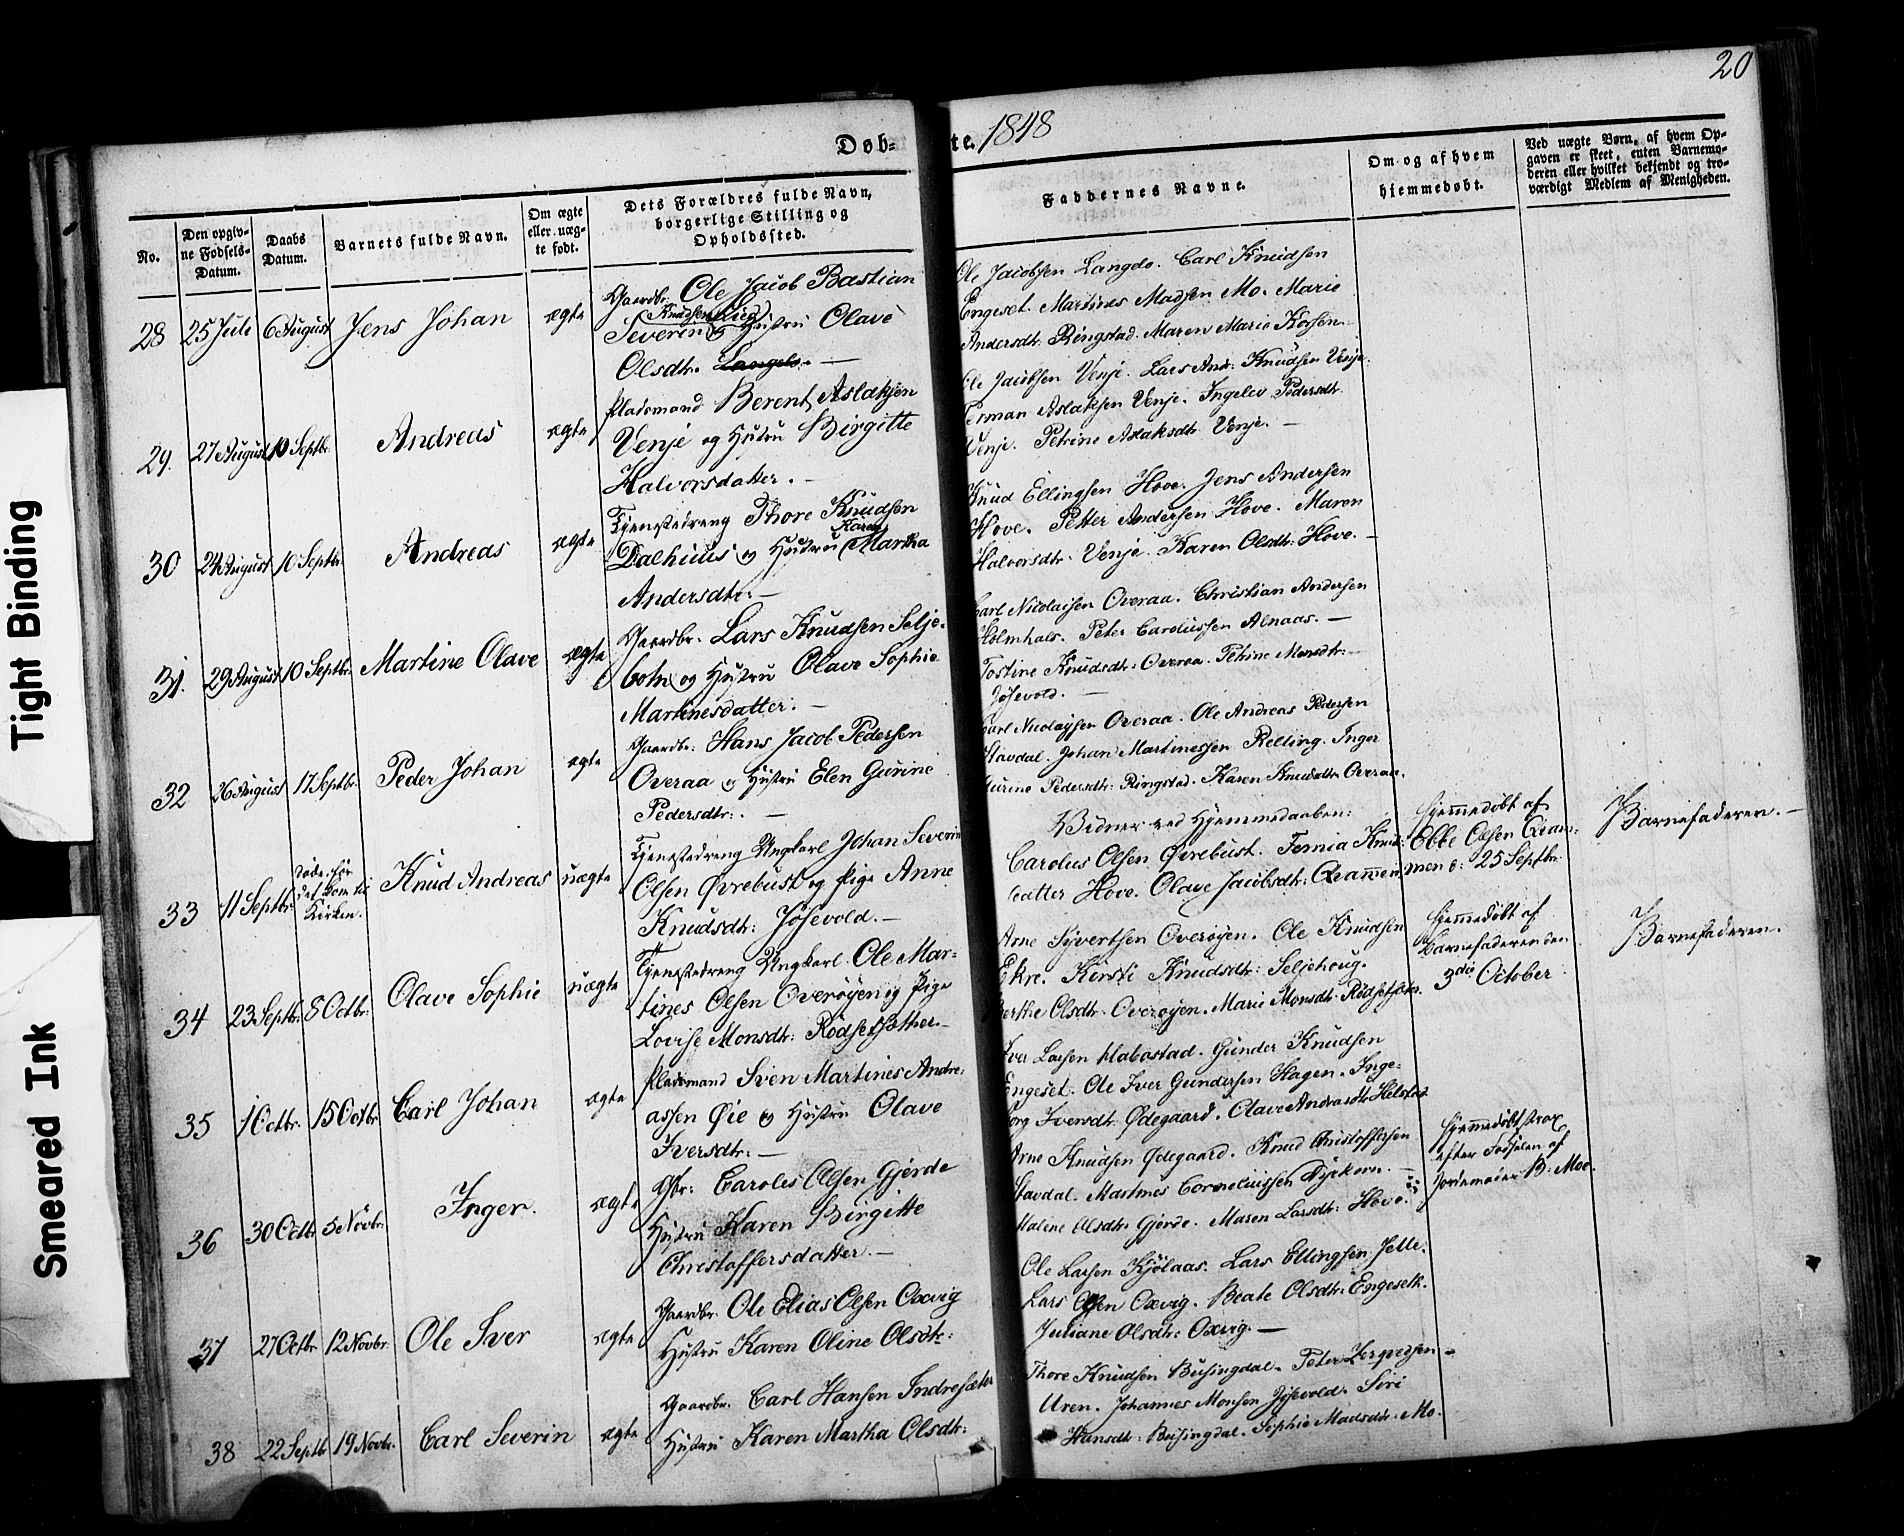 20
Døb-
te. 1848
No.
Den opgiv-
ne Fødsels-
Datum.
Daabs
Datum.
Barnets fulde Navn.
Om ægte
eller uæg-
te født.
Dets Forældres fulde Navn,
borgerlige Stilling og
Opholdssted.
Faddernes Navne.
Om og af hvem
hjemmedøbt.
Ved uægte Børn, af hvem Op-
gaven er skeet, enten Barnemo-
deren eller hvilket bekjendt og tro-
værdigt Medlem af Menigheden.
28 25 Juli 6 August Jens Johan ægte
Gaardbr. Ole Jacob Bastian
Knudsen
Severin og Hustru Olave
Olsdtr. Langelo. —
Ole Jacobsen Langelo. Carl Knudsen
Engeset. Martines Madsen Mo. Marie
Andersdtr. Ringstad. Maren Marie
29. 27 August 10 Septbr. Andreas ægte
Pladsmand Berent Aslaksen
Venje og Hustru Birgitte
Halvorsdatter. —
Ole Jacobsen Venje. Lars And. Knudsen Venje.
Aslaksen Venje. Ingelev Pedersdtr.
Venje. Petrine Aslaksdtr. Venje. —
30 24 August 10 Septbr. Andreas ægte
Tjenestedreng Thore Knudsen
Karen
Dalhuus og Hustru Martha
Andersdtr. —
Knud Ellingsen Hove. Jens Andersen
Hove. Petter Andersen Hove. Maren
Halvorsdtr. Venje. Karen Olsdtr. Hove. —
31. 29 August 10 Septbr. Martine Olave ægte
Gaardbr. Lars Knudsen Selje-
botn og Hustru Olave Sophie
Martinesdatter. —
Carl Nicolaisen Overaa. Christian Andersen
Holmhals. Peter Carolussen Alnaas. —
Tostine Knudsdtr. Overaa. Petrine Monsdtr.
Jøsevold. —
32 26 August 17 Septbr. Peder Johan ægte
Gaardbr. Hans Jacob Pedersen
Overaa og Hustru Elen Gurine
Pedersdtr. —
Carl Nicolaysen Overaa. Ole Andreas Pedersen
Stavdal. Johan Martinessen Relling. Inger
Gurine Pedersdtr. Ringstad. Karen Knudsdtr. Overaa.
33 11 Septbr. døde før
det kom til
Kirken. Knud Andreas uægte
Tjenestedreng Ungkarl Johan Severin
Olsen Øvrebust og Pige Anne
Knudsdtr. Jøsevold. —
Vidner ved Hjemmedaaben:
Carolus Olsen Øvrebust. Knuds-
datter Hove. Olave Jacobsdtr. Qvammen
Hjemmedøbt af
Ebbe Olsen Qvam-
men d: 25 Septbr.
Barnefaderen. —
34 23 Septbr. 8 Octbr. Olave Sophie uægte
Tjenestedreng Ungkarl Ole Mar-
tines Olsen Overøyen og Pige
Lovise Monsdtr. Rødset
Arne Syvertsen Overøyen. Ole Knudsen
Ekre. Kirsti Knudsdtr. Seljehoug.
Berthe Olsdtr. Overøyen. Marie Monsdtr.
Hjemmedøbt af
Barnefaderen den
3die October
Barnefaderen.
35 1 Octbr. 15 Octbr. Carl Johan ægte
Pladsmand Sven Martines Andre-
assen Øie og Hustru Olave
Iversdtr. —
Iver Larsen Mabostad. Gunder Knudsen
Engeset. Ole Iver Gundersen Hagen. Inge-
borg Iversdtr. Ødegaard. Olave Andreasdtr.
36 30 Octbr. 5 Novbr. Inger. ægte
Gbr. Carolus Olsen Gjerde
Hustru Karen Birgitte
Christoffersdatter. —
Arne Knudsen Ødegaard. Knud Christoffersen
Stavdal. Martines Corneliussen
Maline Olsdtr. Gjerde. Maren Larsdtr. Hove.
Hjemmedøbt strax
efter Fødselen af
Jordemoder B. Moe.
37 27 Octbr. 12 Novbr. Ole Iver ægte
Gaardbr. Ole Elias Olsen Oxvig
Hustru Karen Oline Olsdtr.
Ole Larsen Kjølaas. Lars Ellingsen Jelle.
Lars Olsen Oxvig. Beate Olsdtr. Engeseth.
Juliane Olsdtr. Oxvig. —
38 22 Septb 19 Novbr. Carl Severin ægte
Gaardbr. Carl Hansen Indresæter
Hustru Karen Martha Olsdtr.
Thore Knudsen Busingdal. Peter
Uren. Johannes Monsen Jøsevold. Siri
Hansdtr. Busingdal. Sophie Madsdtr. Mo.
Tight Binding
Smeared Ink